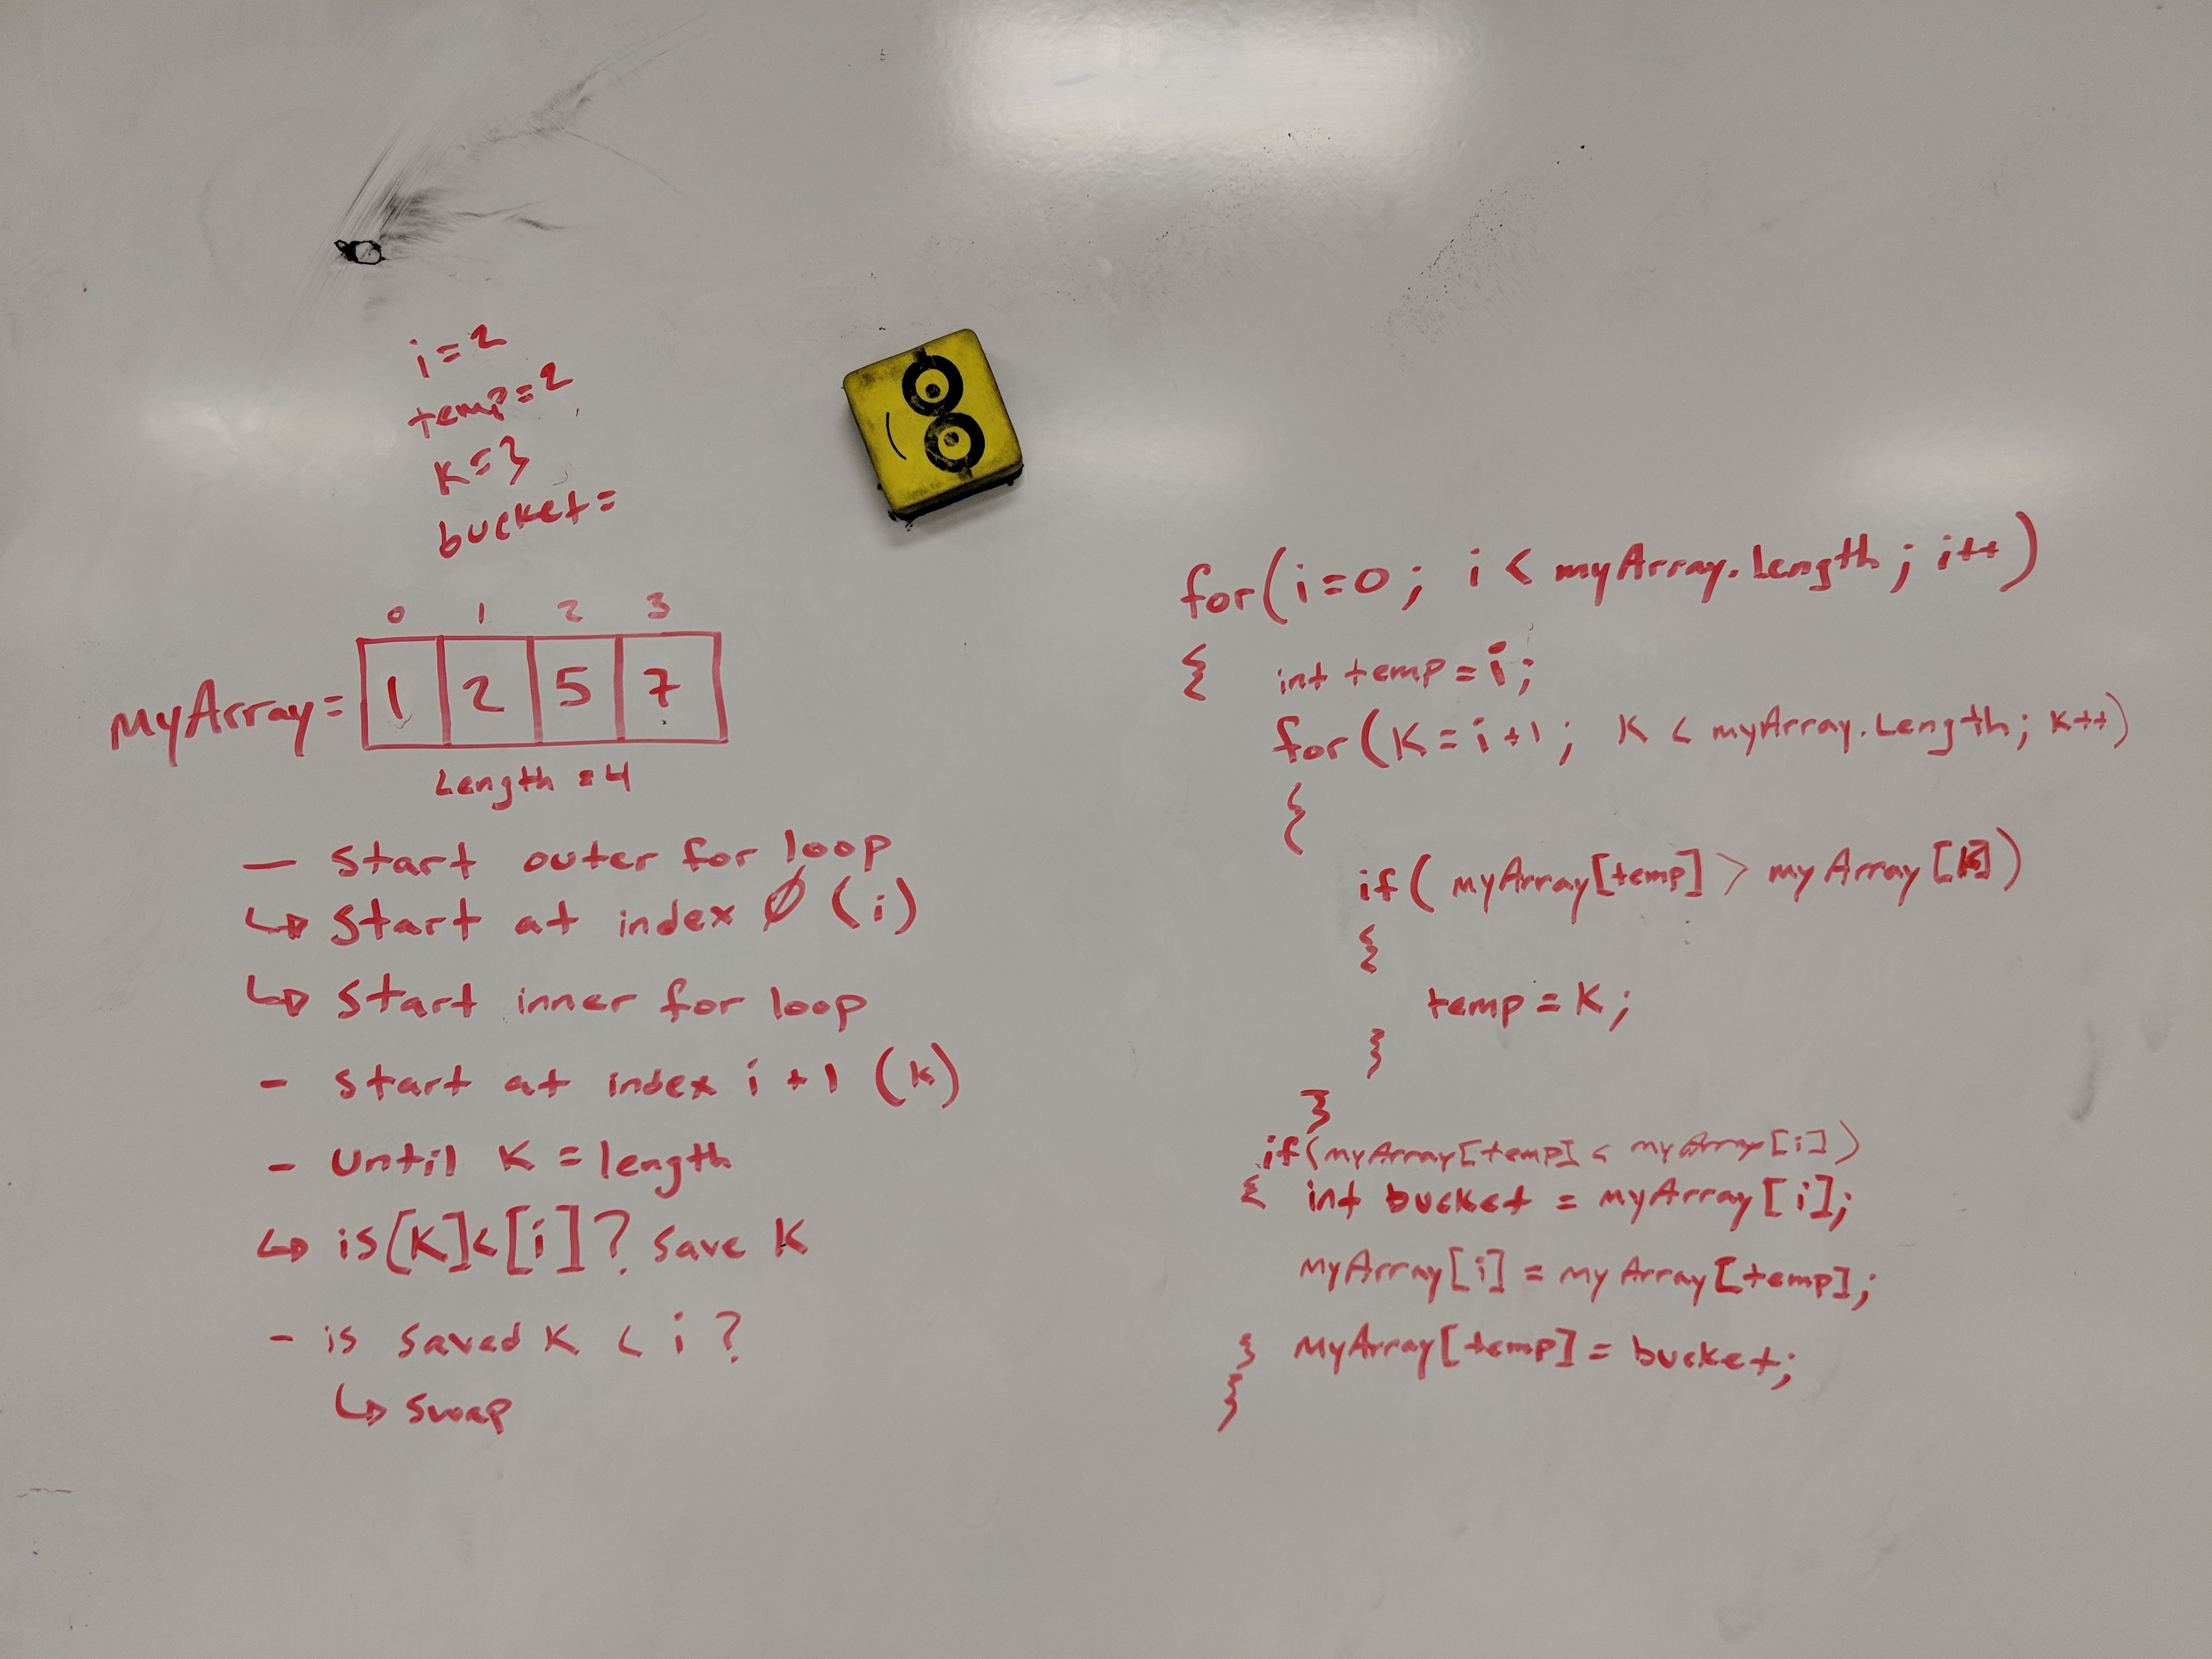 i=2
temp=2
K=3
bucket=
0 1 2 3
myArray= 1 2 5 7
Length = 4
- Start outer for loop
↳ Start at index Ø (i)
↳ Start inner for loop
- Start at index i + 1 (K)
- Until K = length
↳ is[K]<[i]? Save K
- is Saved K < i ?
↳ Swap
for(i=0; i < myArray.Length; i++)
{ int temp = i;
for(K=i+1; K < myArray.Length; K++)
{
if( myArray[temp] > myArray[K])
{
temp = K;
}
}
if(myArray[temp] < myArray[i])
{ int bucket = myArray[i];
myArray[i] = myArray[temp];
} myArray[temp] = bucket;
}